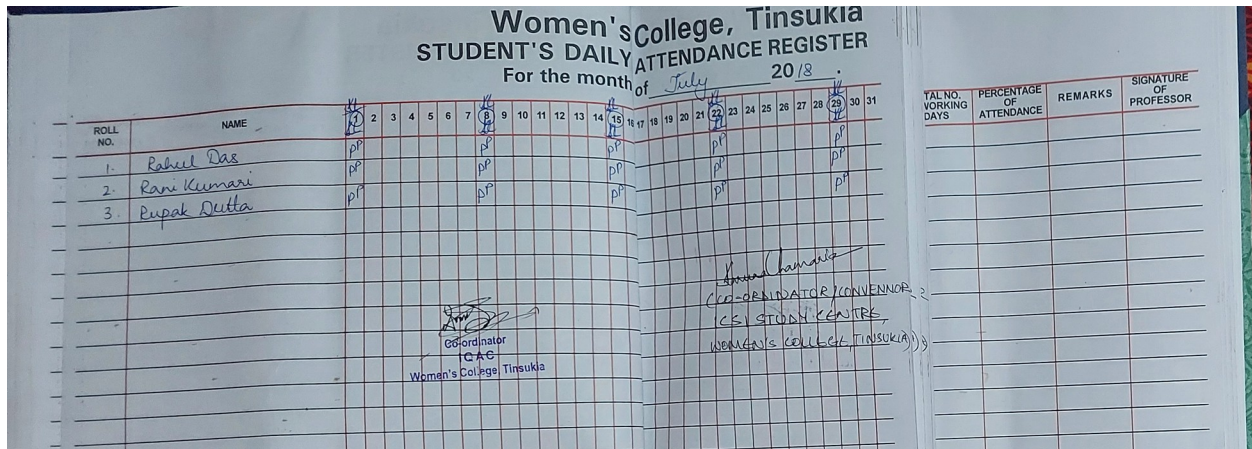 Women's College, Tinsukia
STUDENT'S DAILY ATTENDANCE REGISTER
For the month of July 2018.
ROLL NO. NAME 1 2 3 4 5 6 7 8 9 10 11 12 13 14 15 16 17 18 19 20 21 22 23 24 25 26 27 28 29 30 31 TAL NO. WORKING DAYS PERCENTAGE OF ATTENDANCE REMARKS SIGNATURE OF PROFESSOR
1. Rahul Das PP PP PP PP PP
2. Rani Kumari PP PP PP PP PP
3. Rupak Dutta PP PP PP PP PP
(CO-ORDINATOR/CONVENNOR
ICSI STUDY CENTRE,
WOMEN'S COLLEGE, TINSUKIA)
Co-ordinator
IQAC
Women's College, Tinsukia